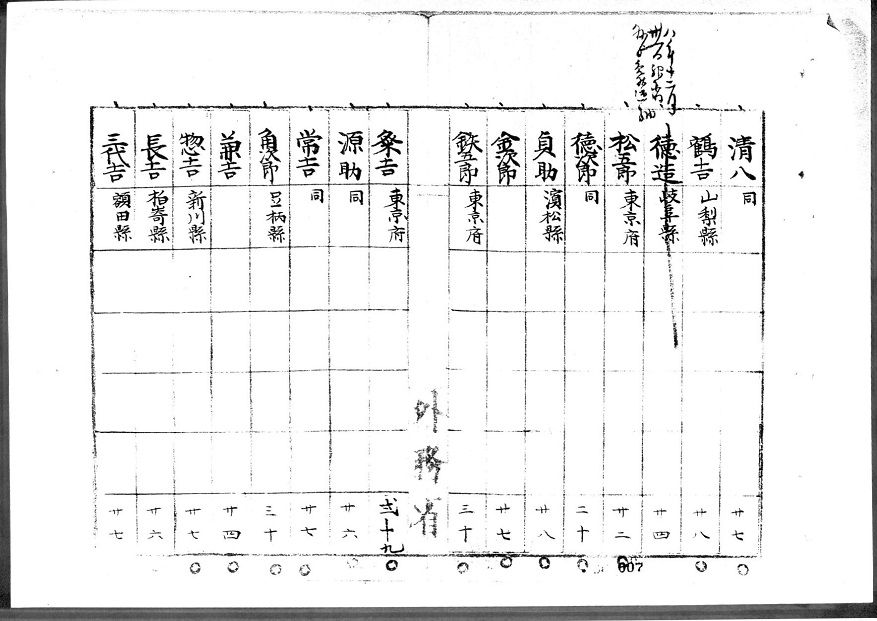 清八 同 廿七
鶴吉 山梨縣 廿八
徳造 岐阜縣 廿四
松五郎 東京府 廿二
徳次郎 同 二十
貞助 濱松縣 廿八
金次郎 廿七
鉄五郎 東京府 三十
外務省
粂吉 東京府 弐十九
源助 同 廿六
常吉 同 廿七
角次郎 足柄縣 三十
兼吉 廿四
惣吉 新川縣 廿七
長吉 柏崎縣 廿六
三代吉 額田縣 廿七
007